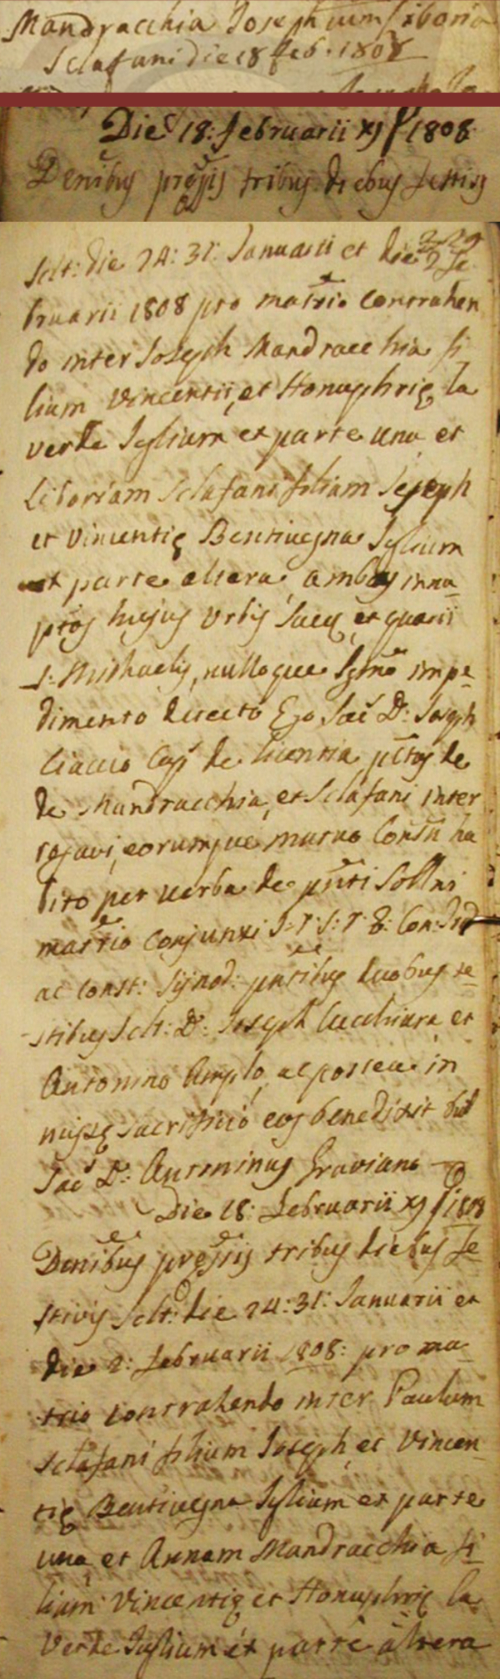 Mandracchia Joseph cum Liboria
Sclafani die 18 Feb. 1808
Die 18: Februarii XI 1808
Denibus prejis tribus diebus festivis
Sclt: die 24: 31: Januarii et die 2 Fe
bruarii 1808 pro matrio contrahen
do inter Joseph Mandracchia fi
lium Vincentii, et Honuphrie la
Verde Jugalium ex parte una et
Liboriam Sclafani filiam Joseph
et Vincentie Bentivegna Jugalium
ex parte altera, ambos
hujus Urbis Sacce, et quarii
S: Michaelis, nulloque impe
dimento detecto Ego Sac D: Joseph
Ciaccio Cap de licentia
de Mandracchia, et Sclafani inter
rogavi, eorumque mutuo Consu ha
bito per verba de pnti Sollni
matrio conjunxi Con: Trid
ac const: Synod: pntibus duobus te-
stibus Sclt: D: Joseph Cucchiara et
Antonino Amplo, ac postea in
misse sacrificio eos benedixit
Sac D: Antoninus Graviano
Die 18: Februarii XI 1808
Denibus prejis tribus diebus Fe
stivis Sclt: die 24: 31: Januarii et
die 2: Februarii 1808: pro ma-
trio contrahendo inter Paulum
Sclafani filium Joseph, et Vincen-
tie Bentivegna Jugalium ex parte
una et Annam Mandracchia fi
liam Vincentii et Honuphrie la
Verde Jugalium ex parte altera